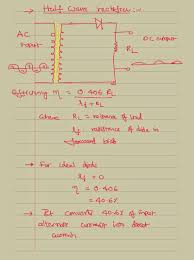 → Half wave rectifier :-
AC
input
RL
DC output
Efficiency η = 0.406 RL
rf + RL
where RL = resistance of load
rf = resistance of diode in
forward bias
→ For ideal diode
rf = 0
η = 0.406
= 40.6%
→ It converts 40.6% of input
alternate current into direct
current.